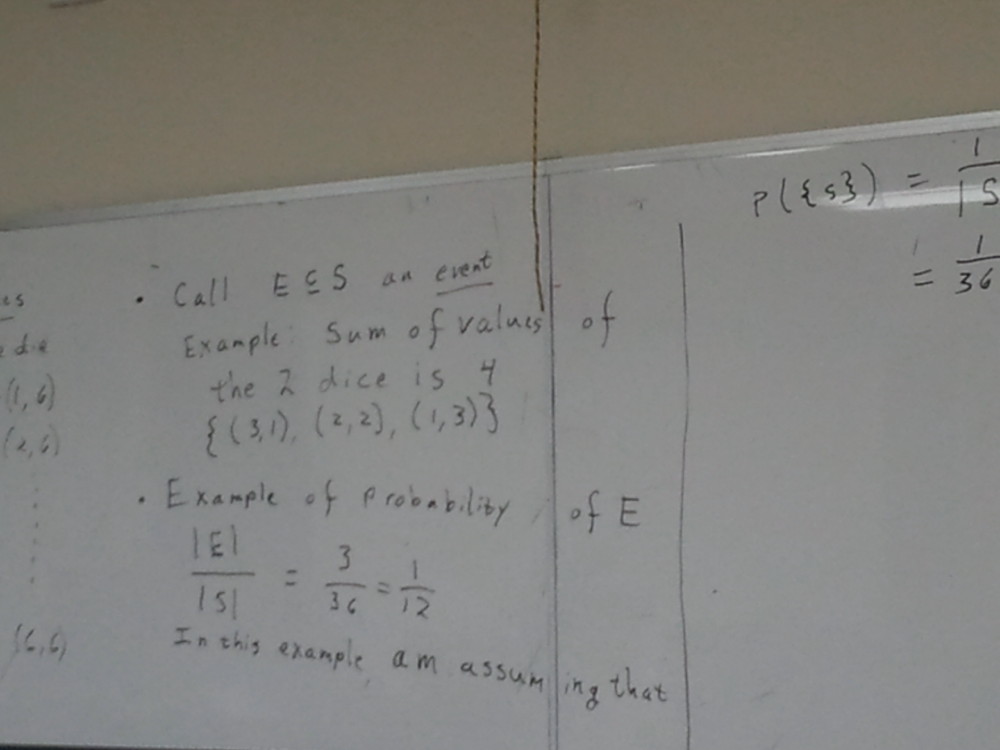 es
e die
(1,6)
(2,6)
(6,6)
• Call E ⊆ S an event
Example: Sum of values of
the 2 dice is 4
{(3,1), (2,2), (1,3)}
• Example of probability of E
|E| / |S| = 3/36 = 1/12
In this example, am assuming that
P({s}) = 1/|S
= 1/36